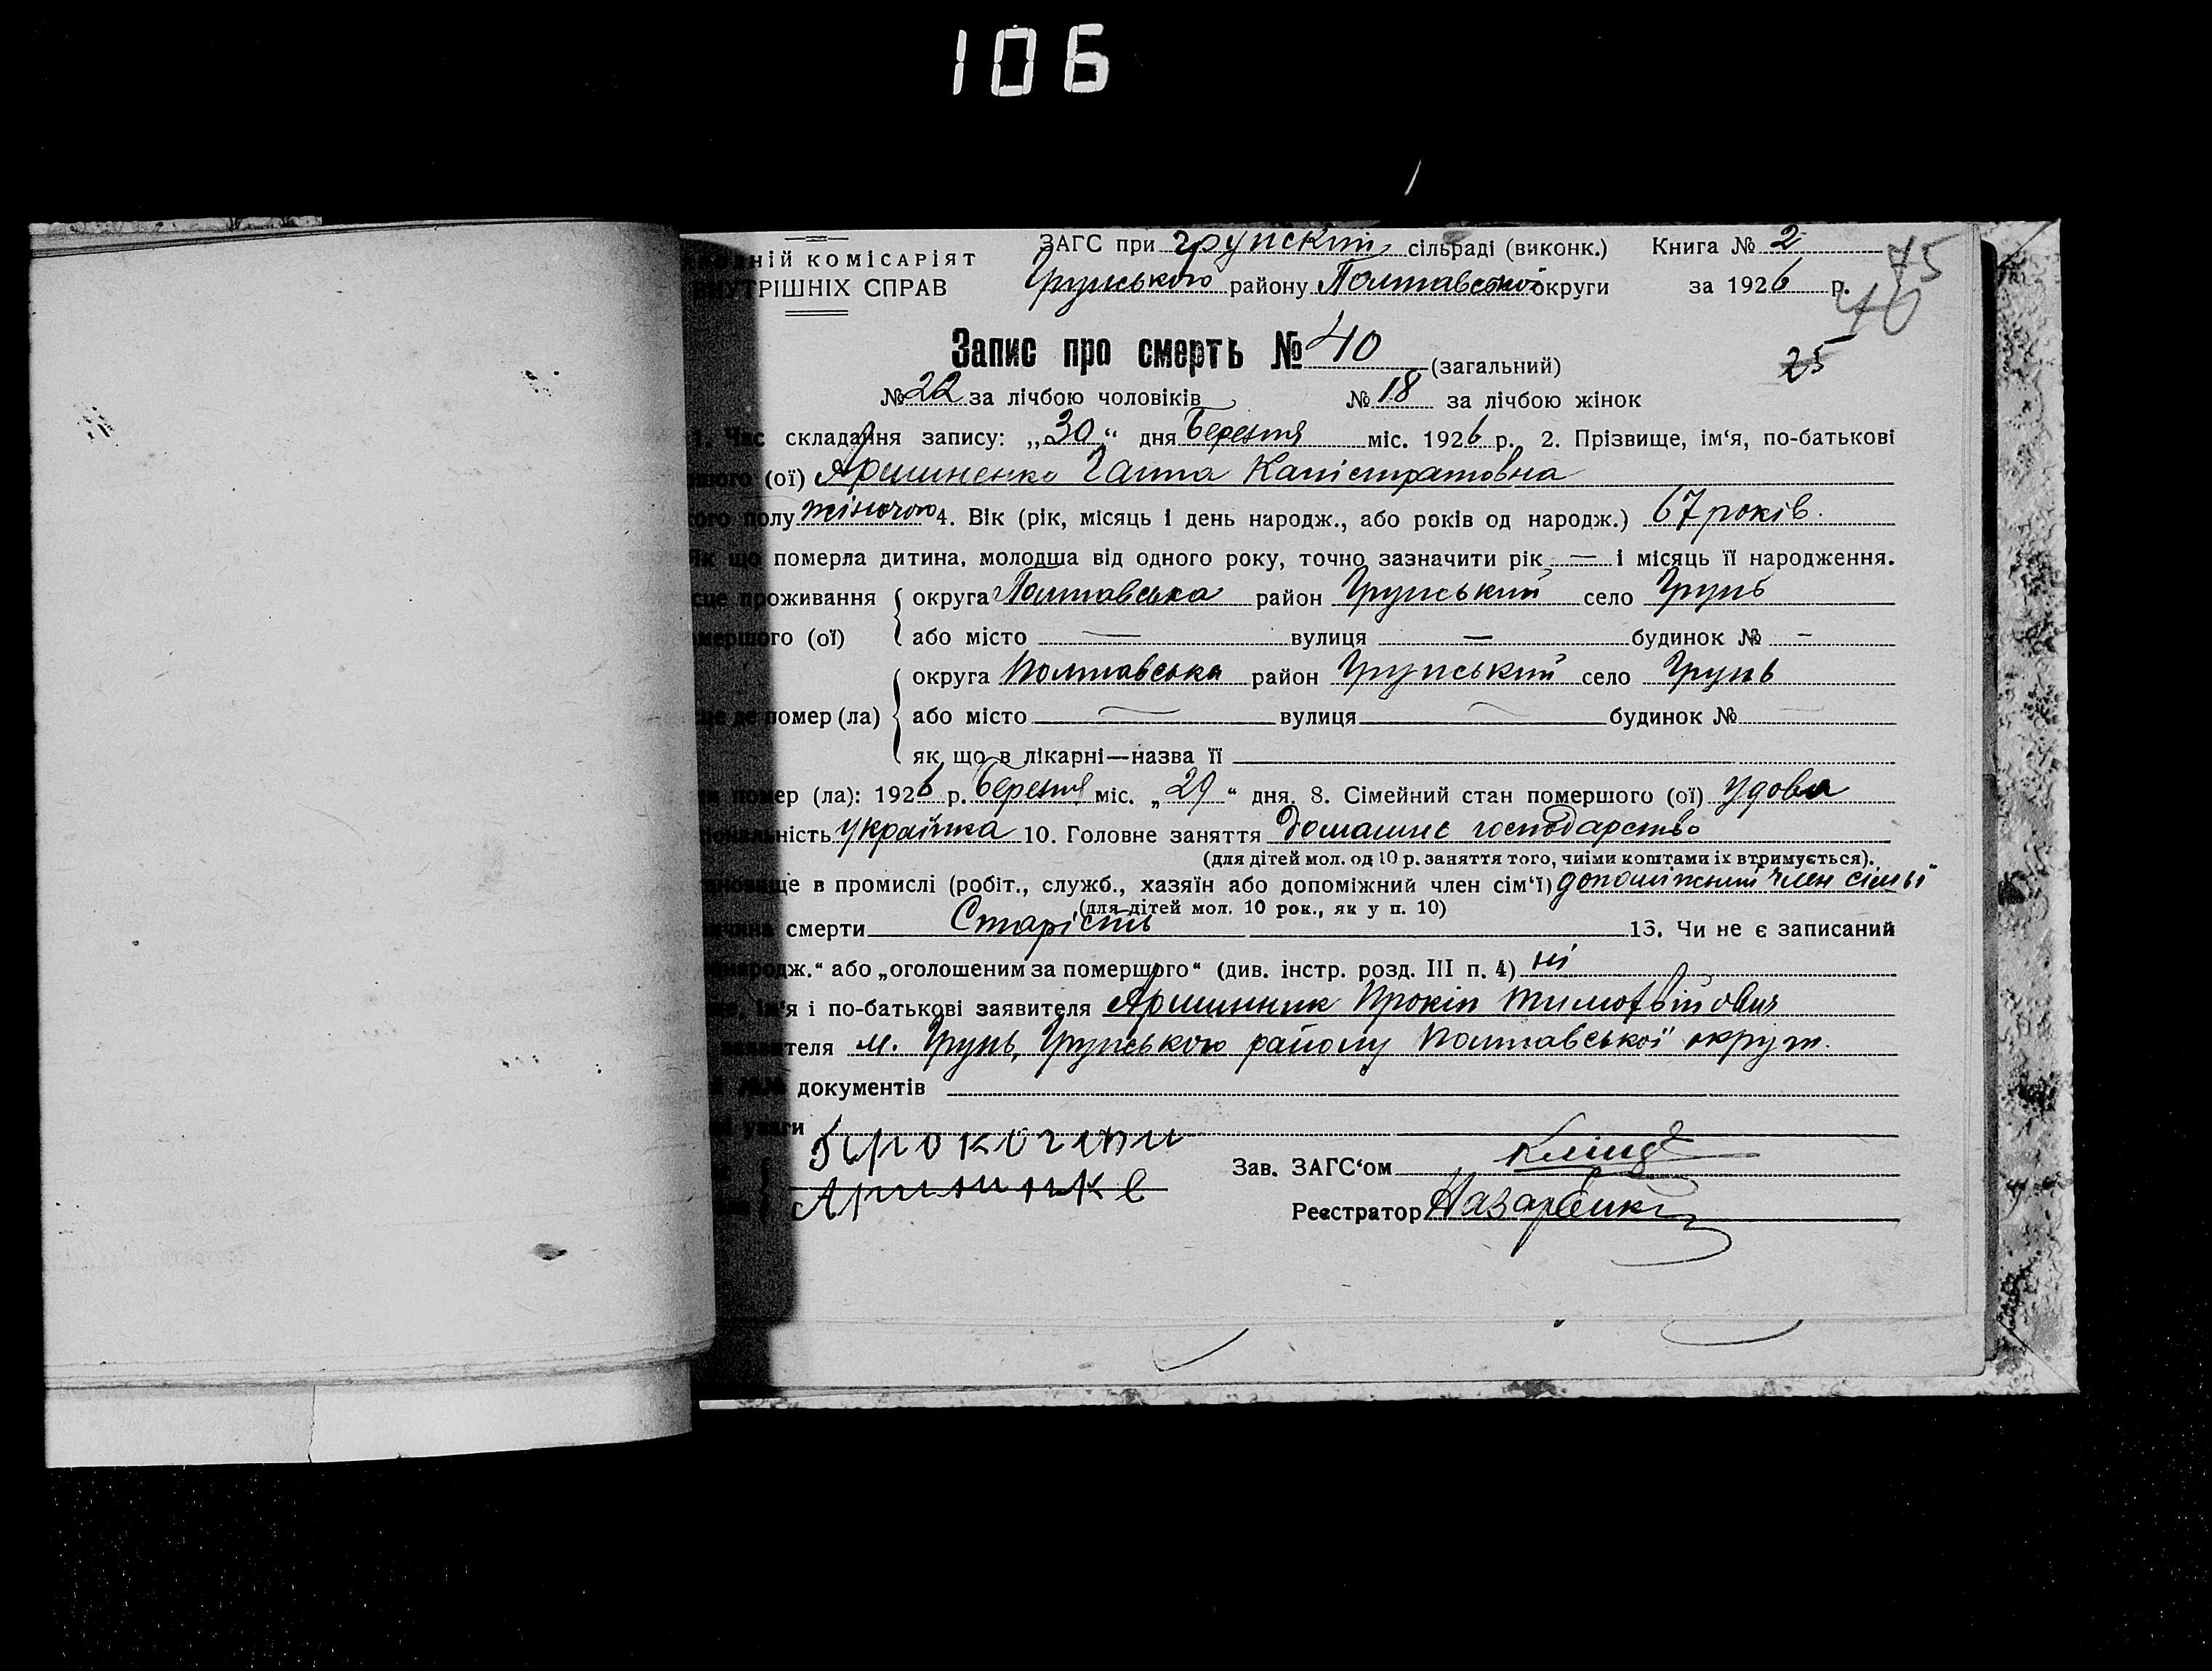 106
ній КОМІСАРІЯТ
ВНУТРІШНІХ СПРАВ
ЗАГС при Грунский сільраді (виконк.) Книга № 2
Грунського району Полтавської округи за 1926 р.
75
40
Запис про смерть № 40 (загальний)
25
№ 22 за лічбою чоловіків № 18 за лічбою жінок
1. Час складання запису: „30“ дня Березня міс. 1926 р. 2. Прізвище, ім‘я, по-батькові
(ої) Аршиненко Ганна Капістратовна
полу жіночого 4. Вік (рік, місяць і день народж., або років од народж.) 67 років.
Як що померла дитина, молодша від одного року, точно зазначити рік — і місяць її народження.
проживання округа Полтавська район Грунський село Грунь
(ої) або місто — вулиця — будинок № -
округа Полтавська район Грунський село Грунь
де помер (ла) або місто — вулиця — будинок № —
як що в лікарні—назва її
помер (ла): 1926 р. Березня міс. „29“ дня. 8. Сімейний стан помершого (ої) удова
ність українка 10. Головне заняття Домашнє господарство
(для дітей мол. од 10 р. заняття того, чиїми коштами їх втримується).
ще в промислі (робіт., служб., хазяїн або допоміжний член сім‘ї) допоміжний член сімьї
(для дітей мол. 10 рок., як у п. 10)
смерти Старість 13. Чи не є записаний
дж.“ або „оголошеним за померщого“ (див. інстр. розд. III п. 4) ні
ім‘я і по-батькові заявителя Аршинник Прокіп Тимофвійович
теля м. Грунь, Грунського району Полтавської округи.
документів
уваги
Зав. ЗАГС‘ом
Реєстратор